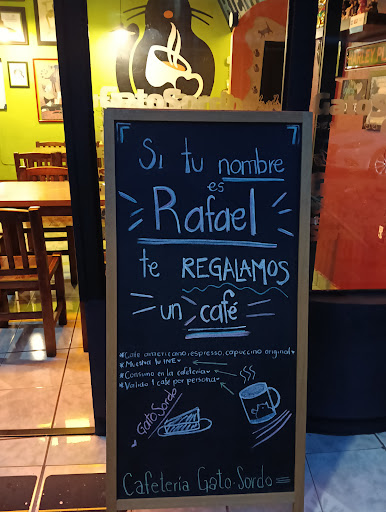 Gato Sordo
Si tu nombre
es
Rafael
te REGALAMOS
un café
*Café americano, espresso, capuccino original*
*Muestra tu INE*
*Consumo en la cafetería*
*Valido 1 café por persona*
Gato Sordo
Cafetería Gato-Sordo